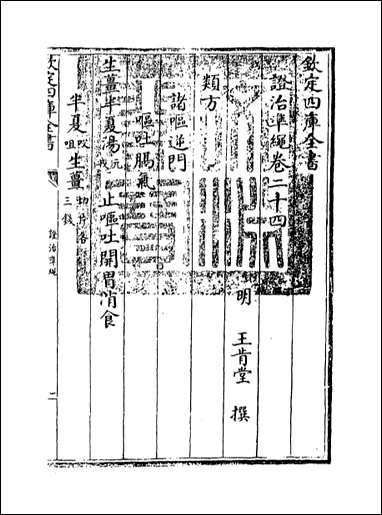 欽定四庫全書
證治準繩卷二十四
明 王肯堂 撰
類方
諸嘔逆門
嘔吐膈氣
生薑半夏湯 止嘔吐開胃消食
半夏 㕮咀 生薑 切片各三錢
欽定四庫全書
證治準繩
一